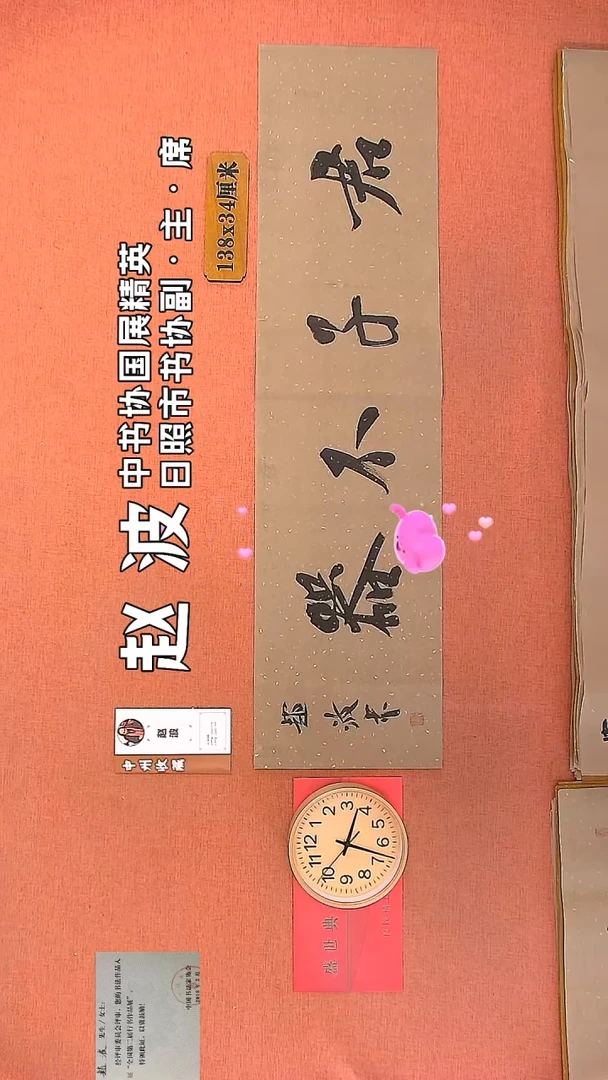 中书协国展精英
日照市书协副·主·席
赵波
138x34厘米
君子不器
赵波书
赵波
中州收藏
盛世典
11 12 1 2 3 4 5 6 7 8 9 10
赵波 先生/女士:
经评审委员会评审,您的书法作品入
展“全国第二届行书作品展”,
特颁此证,以资鼓励!
中国书法家协会